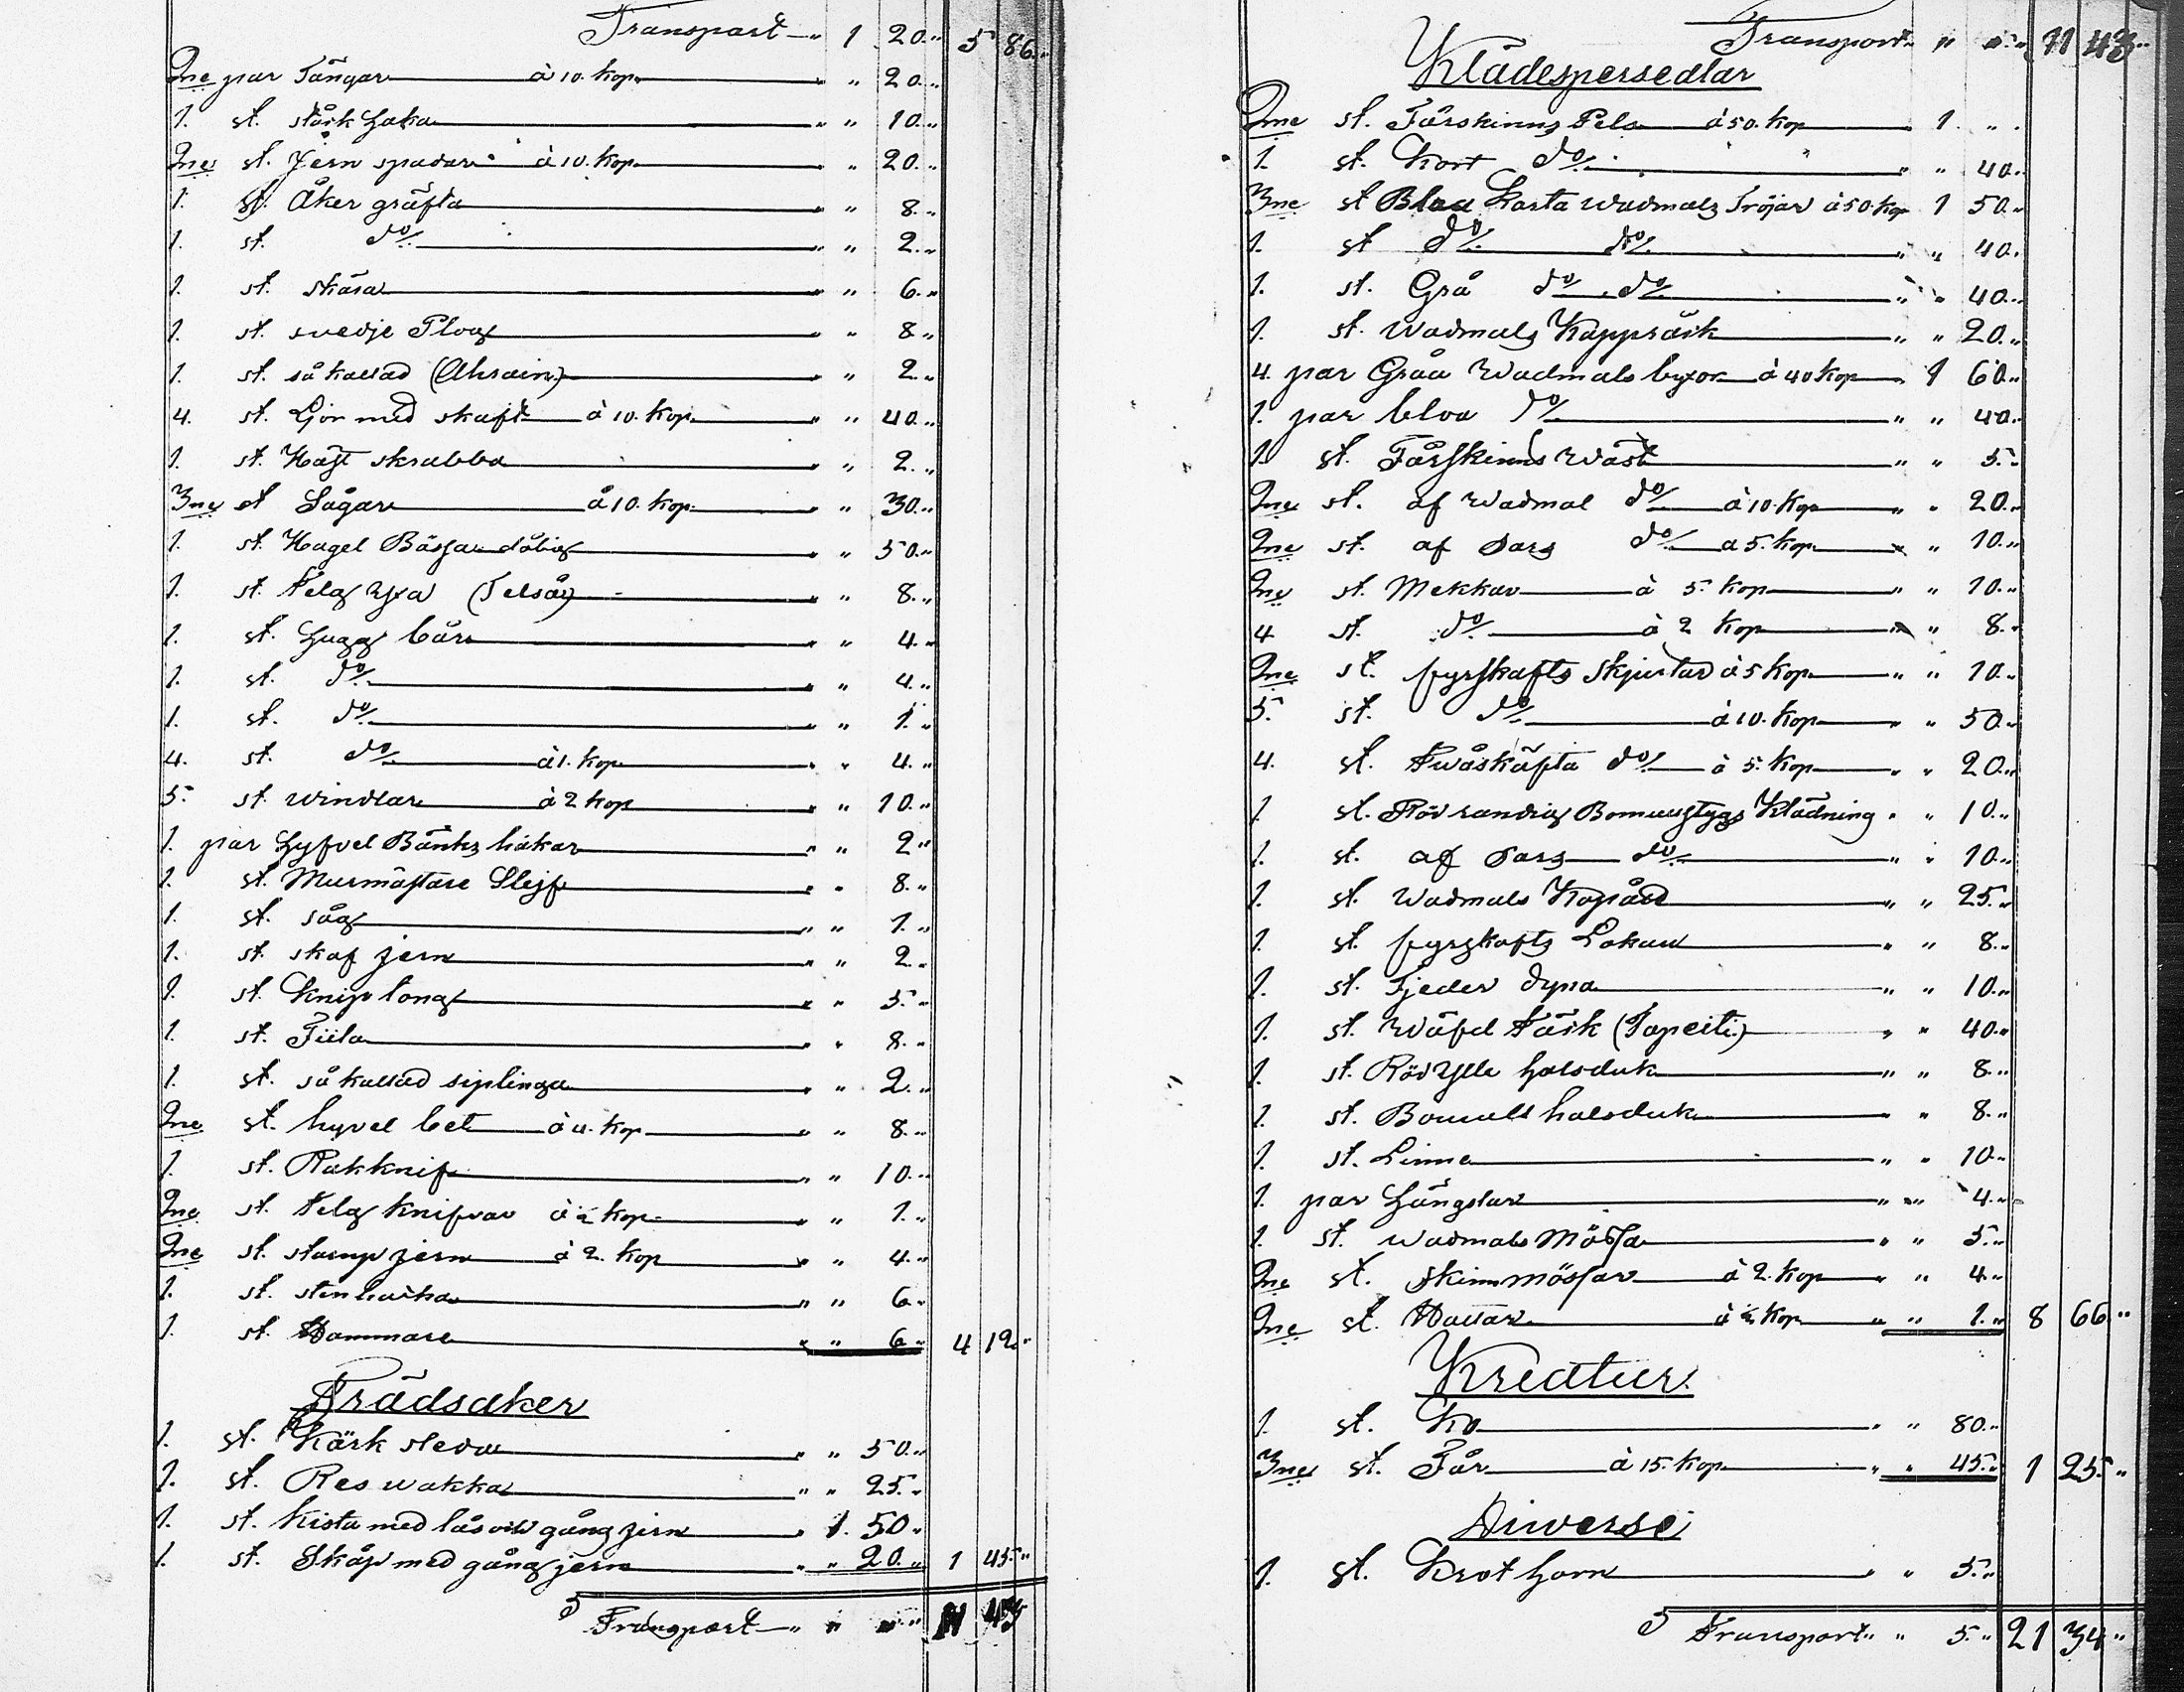 Transport " 1 20 " 5 86 "
2ne par Tångar à 10. kop " " 20 "
1. st. stårk haka " " 10 "
2ne st. Jern spadar à 10. kop " " 20 "
1. st. Åker gräfta " " 8 "
1. st. do/. " " 2 "
1. st. skära " " 6 "
1. st. svedje Plog " " 8 "
1. st. så kallad (Ahrain) " " 2 "
4. st. Ljor med skaft à 10. kop " " 40 "
1. st. Häst skrabba " " 2 "
3ne st Sågar à 10. kop " " 30 "
1. st. Hagel Bössa " " 50 "
1. st. Telg yxa (Telsåy) " " 8 "
1. st. Hugg bårr " " 4 "
1. st. do/. " " 4 "
1. st. do/. " " 1 "
4. st. do/. à 1. kop " " 4 "
5. st. windlar à 2 kop " " 10 "
1. par Hyfvel Bänks håkar " " 2 "
1. st. Murmästare Slejf " " 8 "
1. st. såg " " 1 "
1. st. skaf jern " " 2 "
1. st. Knip tong " " 5 "
1. st. Fiila " " 8 "
1. st. så kallad siplinga " " 2 "
2ne st. hyvel bet à 4. kop " " 8 "
1. st. Rakknif " " 10 "
2ne st. Telg knifvar à ½ kop " " 1 "
2ne st. stamp jern à 2. kop " " 4 "
1. st. stenhacka " " 6 "
1. st. Hammare " " 6 " 4 12 "
Trädsaker
1. st. Kärk sleda " " 50 "
1. st. Res wakka " " 25 "
1. st. Kista med lås och gång jern " 1. 50 "
1. st. Skåp med gång jern " " 20 " 1 45 "
Transport " " " 11 43
Transport " " " 11 43 "
Klädespersedlar
2ne st. Fårskinns Pels à 50. kop 1 " "
1. st. kort do/. " " 40 "
3ne st Blaa Korta Wadmals Tröjar à 50 kop 1 50 "
1. st do/. do/. " " 40 "
1. st. Grå do/. do/. " " 40 "
1. st. Wadmals Kappråck " " 20 "
4. par Gråa Wadmals byxor à 40 kop 1 60 "
1. par bloa do/. " " 40 "
1. st. Fårskinns Wäst " " 5 "
2ne st. af Wadmal do/. à 10 kop " " 20 "
2ne st. af Sars do/. à 5. kop " " 10 "
2ne st. Mekkar à 5 kop " " 10 "
4 st. do/. à 2 kop " " 8 "
2ne st. fyrskafts Skjurtar à 5 kop " " 10 "
5. st. do/. à 10. kop " " 50 "
4. st. Twåskäfta do/. à 5. kop " " 20 "
1. st. Röd randig Bomullstygs Klädning " " 10 "
1. st. af Sars do/. " " 10 "
1. st. Wadmals Kapåd " " 25 "
1. st. fyrskafts Lakan " " 8 "
1. st. Fjeder dyna " " 10 "
1. st. Wäfd Täck (Tapeiti) " " 40 "
1. st. Röd Ylle halsduk " " 8 "
1. st. Bomull halsduk " " 8 "
1. st. Linne " " 10 "
1. par Hängslar " " 4 "
1. st. Wadmals Mössa " " 5 "
2ne st. Skinnmössar à 2. kop " " 4 "
2ne st. Hattar à ½ kop " " 1 " 8 66 "
Kreatur
1. st. Ko " " 80 "
3ne st. Får à 15. kop " " 45 " 1 25 "
Diverse
1. st. Krot horn " " 5 "
Transport " " 5 " 21 34 "